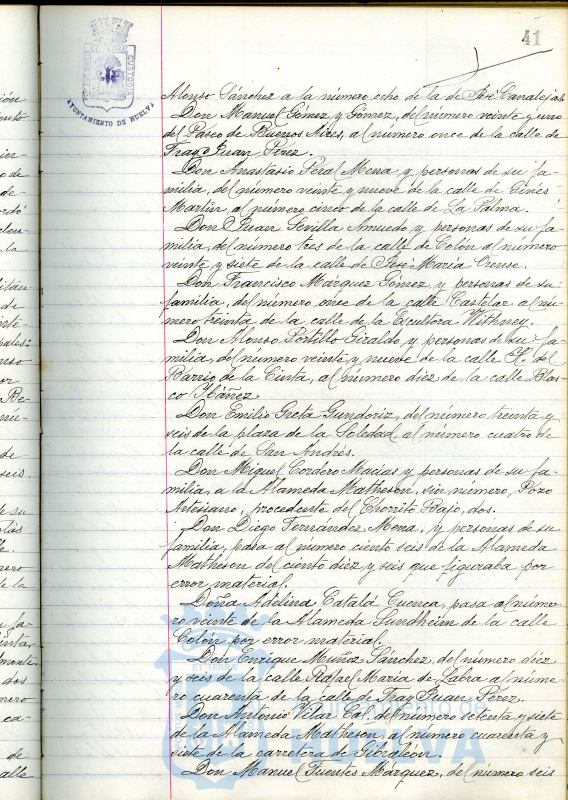 41
AYUNTAMIENTO DE HUELVA
CUSTODIA
Alonso Sánchez a la número ocho de la de José Canalejas.
Don Manuel Gómez y Gómez, del número veinte y uno
del Paseo de Buenos Aires, al número once de la calle de
Fray Juan Pérez.
Don Anastasio Peral Mena y personas de su fa-
milia, del número veinte y nueve de la calle de Ginés
Martín al número cinco de la calle de La Palma.
Don Juan Sevilla Amuedo y personas de su fa-
milia, del número tres de la calle de Colón al número
veinte y siete de la calle de José María Orense.
Don Francisco Márquez Gómez y personas de su
familia, del número once de la calle Castelar al nú-
mero treinta de la calle de la Escultora Withney.
Don Alonso Portillo Giraldo y personas de su fa-
milia, del número veinte y nueve de la calle H. del
Barrio de la Cinta, al número diez de la calle Blas-
co Ibáñez
Don Emilio Greta Gundoriz, del número treinta y
seis de la plaza de la Soledad, al número cuatro de
la calle de San Andrés.
Don Miguel Cordero Macías y personas de su fa-
milia, a la Alameda Matheson, sin número, Pozo
Artesiano, procedente del Chorrito Bajo, dos.
Don Diego Fernández Mena, y personas de su
familia, pasa al número ciento seis de la Alameda
Matheson del ciento diez y seis que figuraba por
error material.
Doña Adelina Catalá Cuenca, pasa al núme-
ro veinte de la Alameda Sundheim de la calle
Colón por error material.
Don Enrique Muñoz Sánchez, del número diez
y seis de la calle Rafael María de Labra al núme-
ro cuarenta de la calle de Fray Juan Pérez.
Don Antonio Vilar Col, del número setenta y siete
de la Alameda Matheson, al número cuarenta y
siete de la carretera de Gibraleón.
Don Manuel Fuentes Márquez, del número seis
Ayuntamiento de
HUELVA